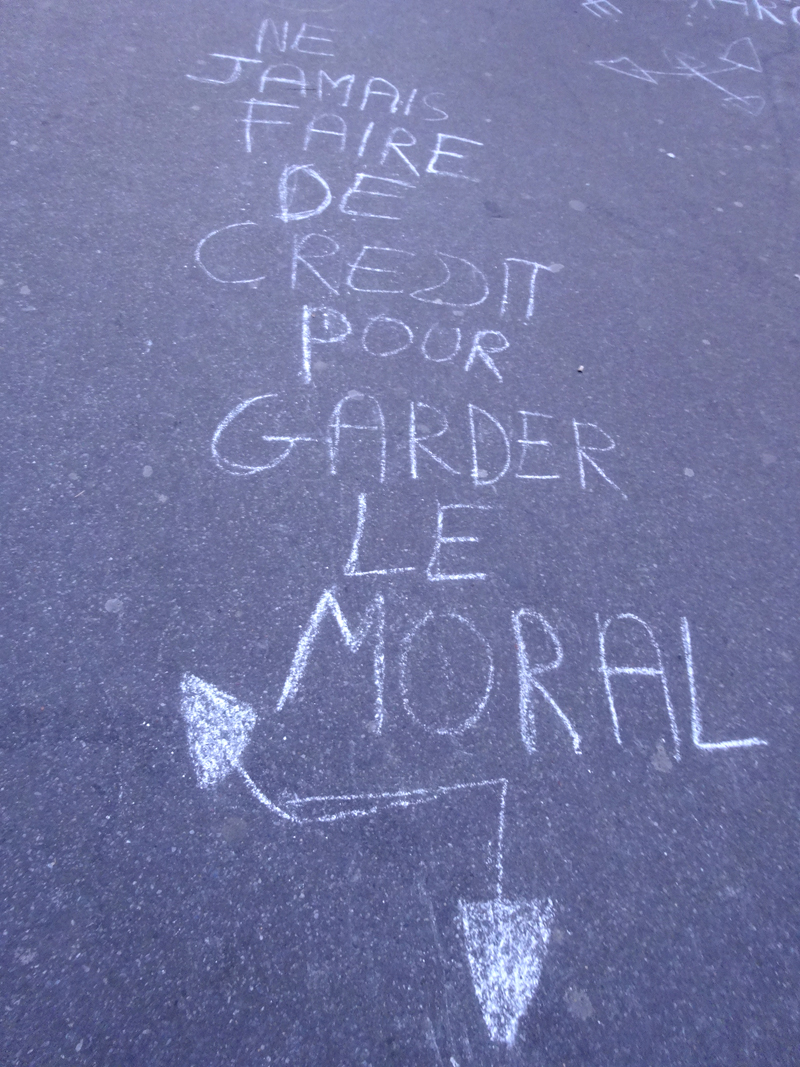 NE
JAMAIS
FAIRE
DE
CREDIT
POUR
GARDER
LE
MORAL